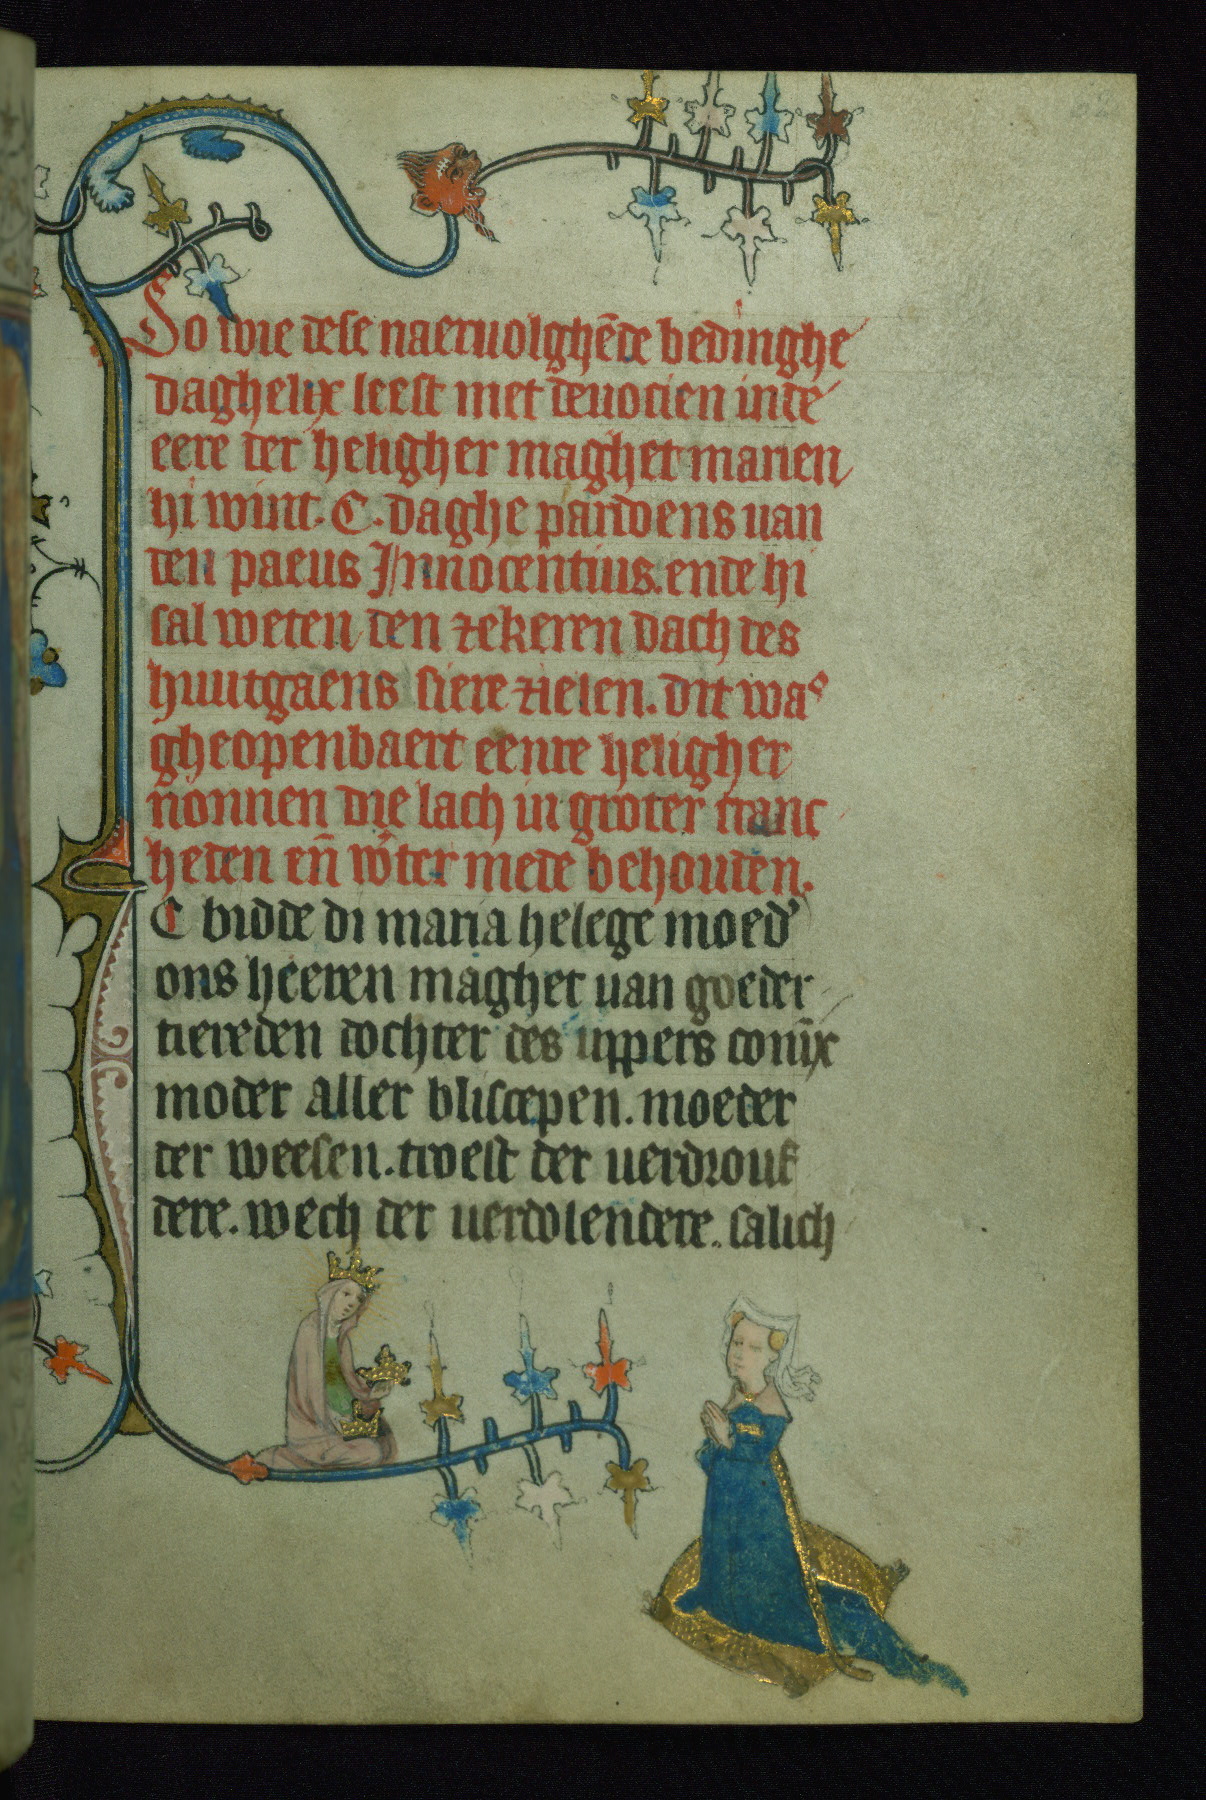 So wie dese naeruolghēde bedinghe
daghelix leest met deuocien in de
eere der heligher maghet marien
hi wint .C. daghe pardoens uan
den paeus Innocentius. ende hi
sal weten den zekeren dach des
huutgaens siere zielen. dit was
gheopenbaert eenre heligher
nonnen die lach in groter cranc
heden eñ wter mede behouden.
C bidde di maria helege moed'
ons heeren maghet uan goeder
tiereden dochter des uppers coninx
moder aller bliscepen. moeder
der weesen. troest der uerdrouf
dere. wech der uerdolendere. salich